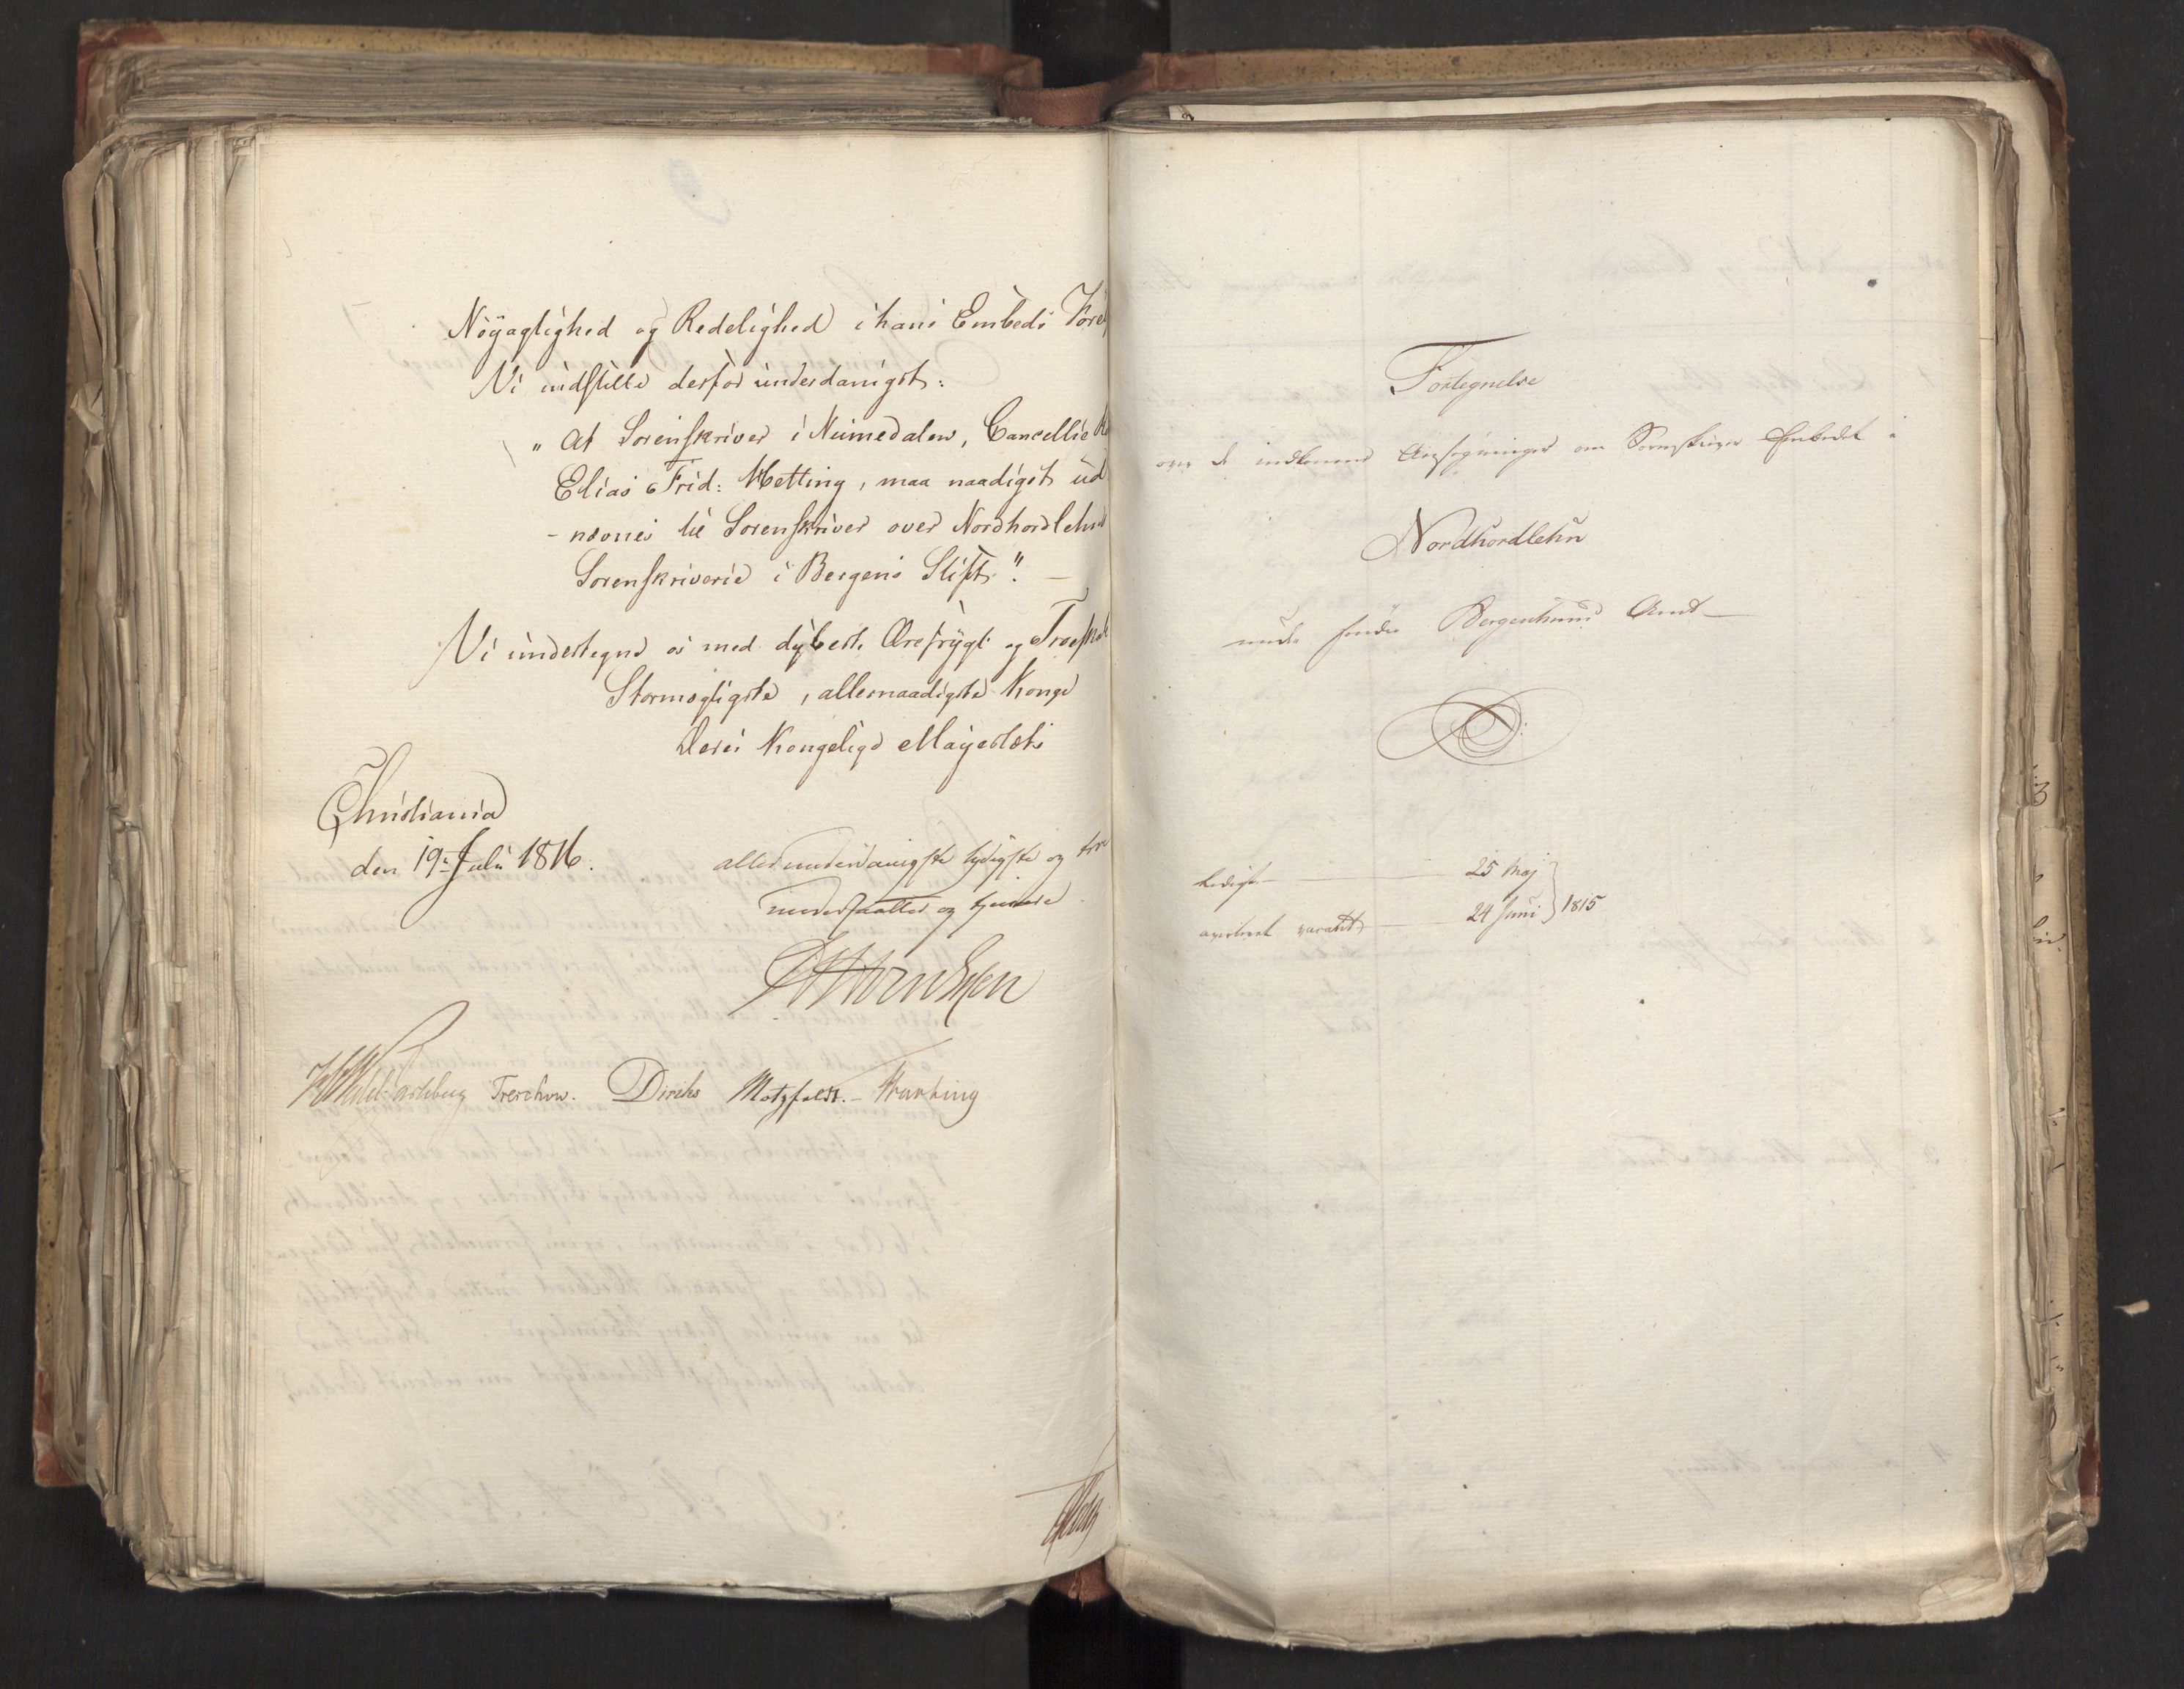 Nöyagtighed og Redelighed i hans Embeds
Vi indstille derfor underdanigst:
„ At Sorenskriver i Numedalen, Cancellie
Elias Frid: Hetting, maa naadigst üd
- nævnes til Sorenskriver over Nordhordlehns
Sorenskriverie i Bergens Stift". —
Vi undertegne os med dybeste Ærefrygt og Troeskab
Stormægtigste, allernaadigste Konge
Deres Kongelige Mayestæts
Christiania
den 19de Julii 1816.
allerunderdanigste lydigste og troe
undersaatter og tjenere
Treschow. Diriks Motzfeldt. -
Fortegnelse
over de indkomne Ansøgninger om Sorenskriver Embedet i
Nordhordlehn
under søndre Bergenhuus Amt —
Ledigt — 25 Maj
averteret vacant — 24 Juni } 1815